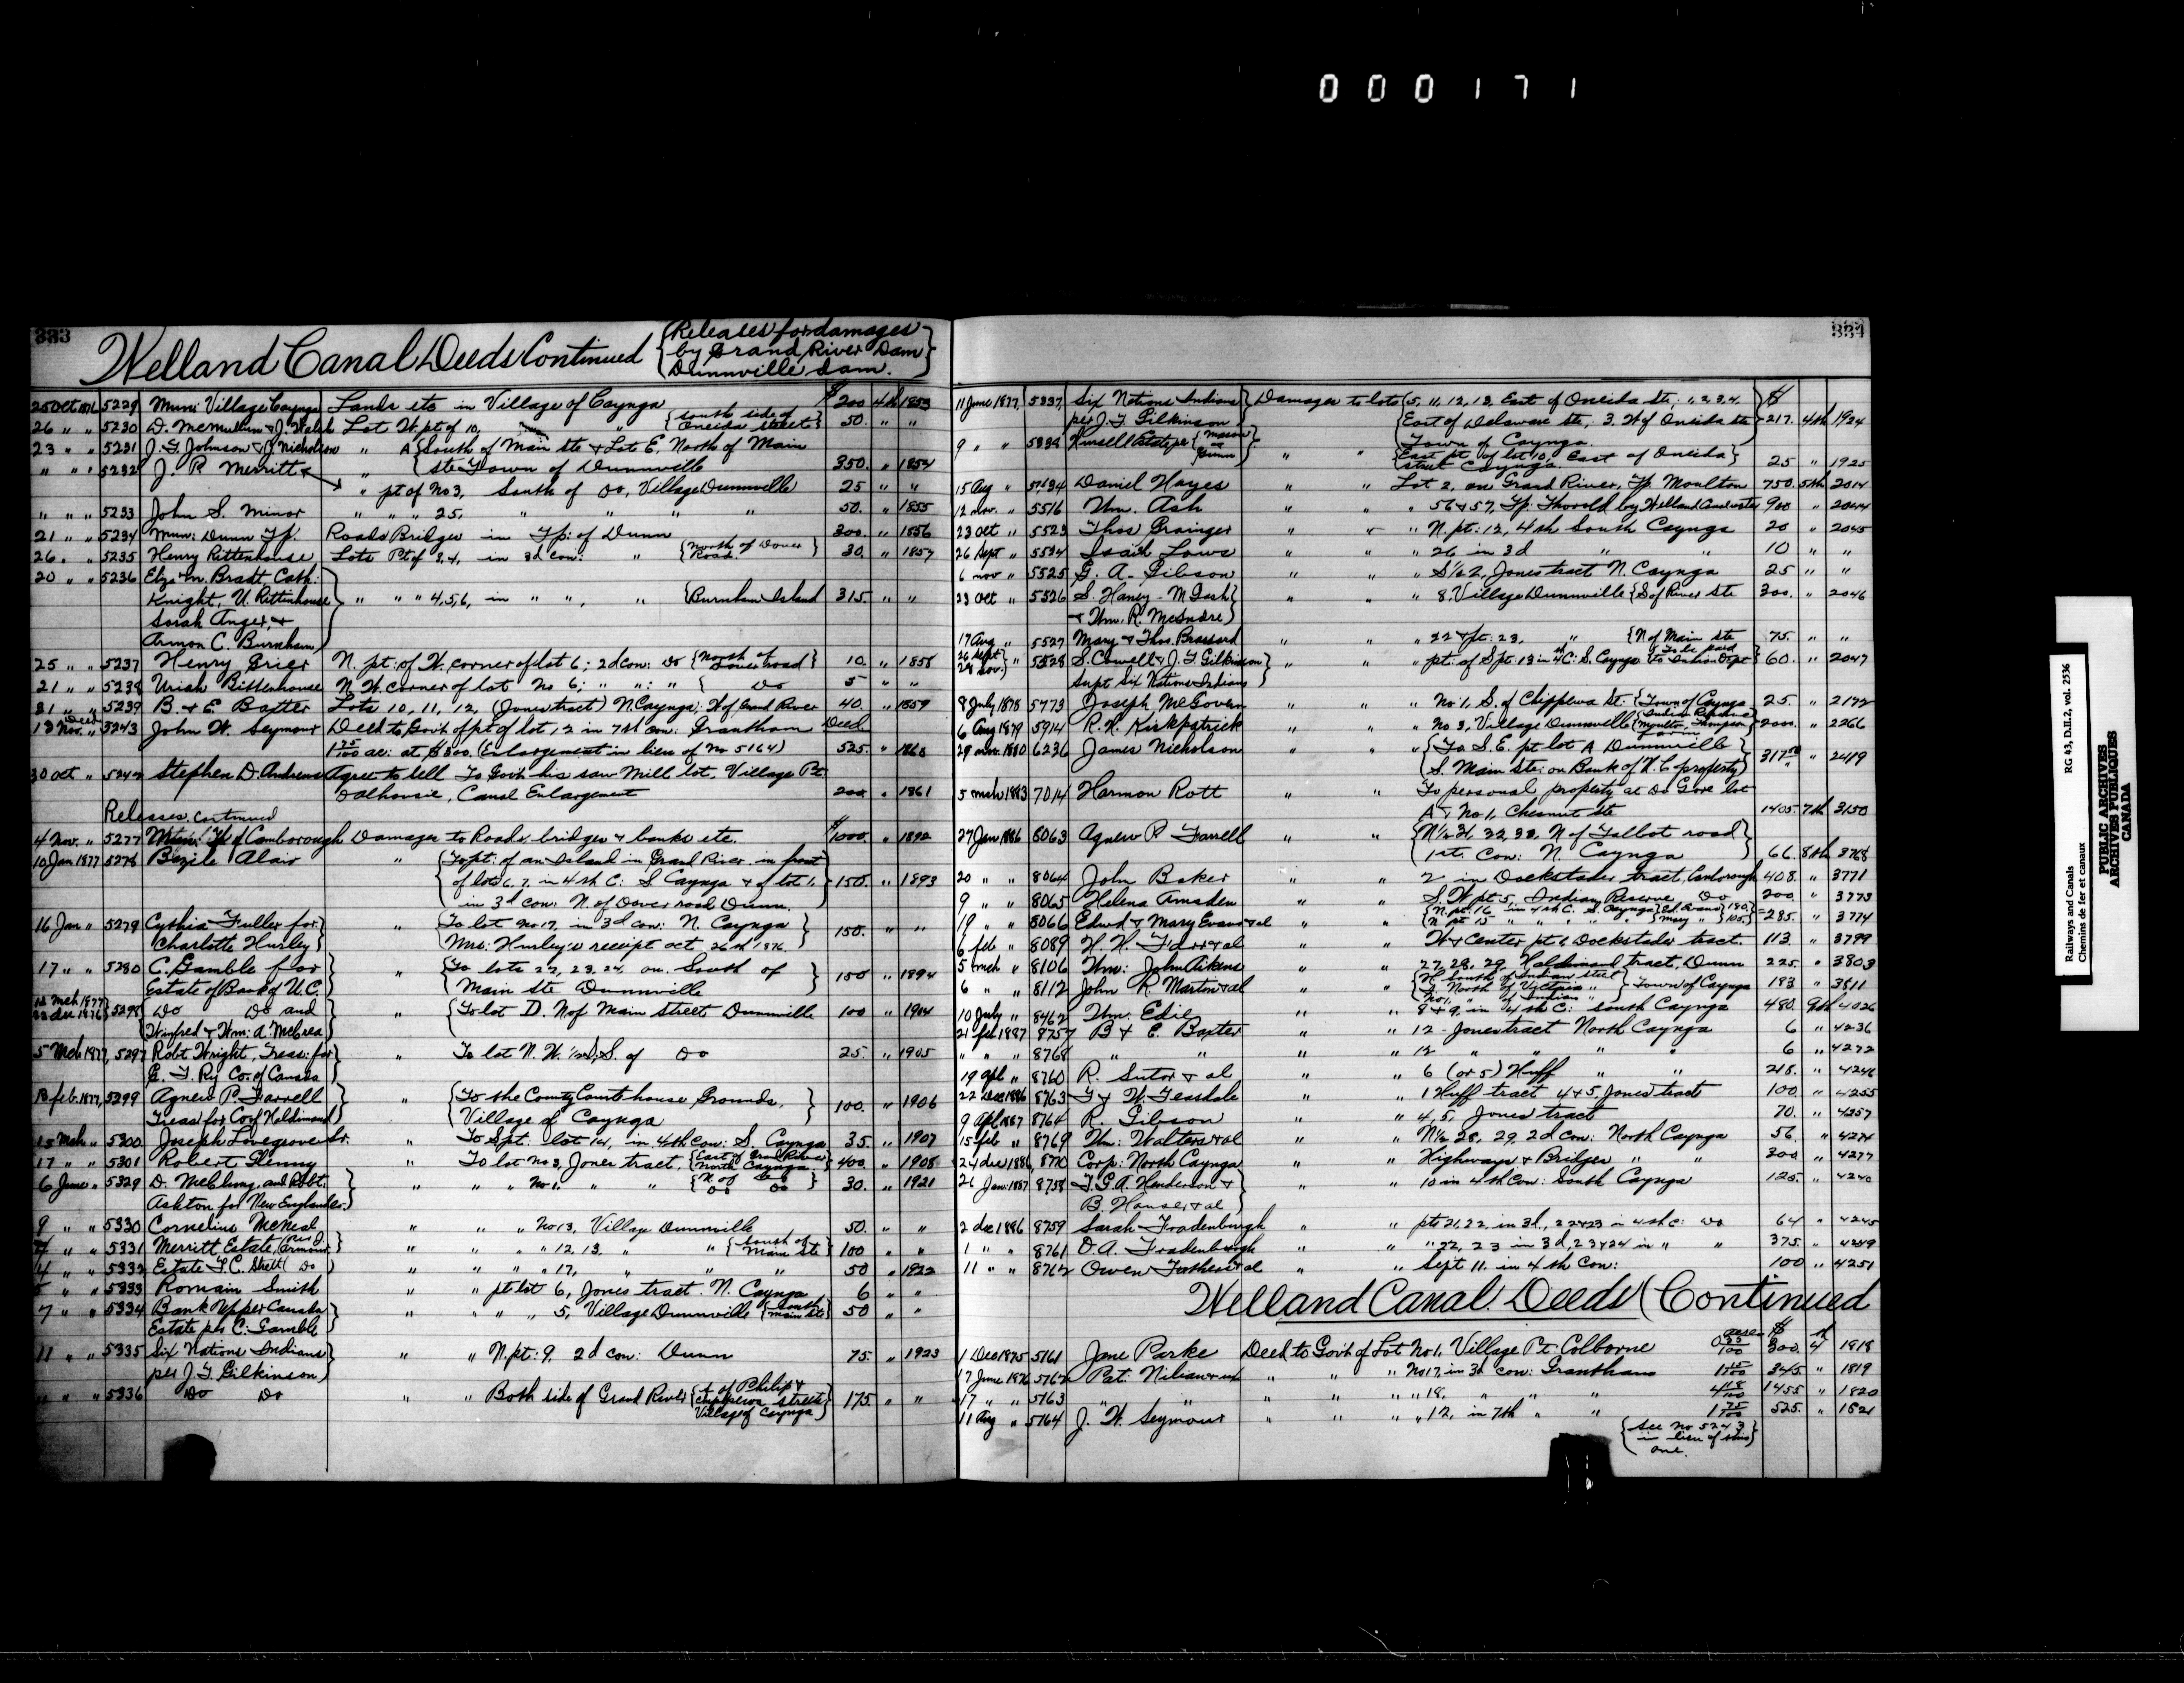 000171
333
Welland Canal Deeds Continued {Releases for damages
by Grand River Dam
Dunnville Dam.}
25 Oct 1876 5229 Muni: Village Cayuga Lands etc in Village of Cayuga $200 4th 1853
26 " " 5230 D. McMullen & J. Walsh Lot W. pt of 10, " {South side of Oneida street} 50. " "
23 " " 5231 J. G. Johnson & J. Nicholson " A {South of Main ste & Lot E. North of Main
" " " 5232 J. R. Merritt & " ste Town of Dunnville 350. " 1854
" pt of No 3, South of Do, Village Dunnville 25 " "
" " " 5233 John S. Minor " " " 25, " " " 50. " 1855
21 " " 5234 Muni: Dunn Tp. Roads Bridges in Tp: of Dunn 300. " 1856
26 " " 5235 Henry Rittenhouse Lots Pt of 3, 4, in 3d con: " {North of Dover Road.} 30. " 1857
20 " " 5236 Eliz & m. Bradt, Cath:
Knight, U. Rittenhouse " " " 4, 5, 6, in " ", " {Burnham Island 315. " "
Sarah Anger, &
Armon C. Burnham}
25 " " 5237 Henry Grier N. pt: of W. corner of lot 6; 2d con: Do {North of Dover road} 10. " 1858
21 " " 5238 Uriah Rittenhouse N. W. corner of lot No 6; " ": " { Do 5 " "
31 " " 5239 B. & E. Baxter Lots 10, 11, 12, (Jones tract) N. Cayuga: W of Grand River 40. " 1859
13 Nov. " Deed 5243 John W. Seymour Deed to Gov't of pt of lot 12 in 7th con: Grantham Deed
1 75/100 ac: at $300. (Enlargement in lieu of No 5164) 525. " 1860
30 Oct " 5242 Stephen D. Andrews Agree to sell To Gov't his saw Mill lot, Village Pt.
Dalhousie, Canal Enlargement 200 " 1861
Releases, continued
4 Nov. " 5277 Muni: Tp of Canborough Damages to Roads, bridges & banks etc. $1000. " 1892
10 Jan 1877 5278 Bezile Alair " {To pt: of an Island in Grand River in front
of lots 6. 7. in 4th C: S Cayuga & of lot 1.} 150. " 1893
in 3d con: N. of Dover road Dunn.
16 Jan " 5279 Cythia Fuller for " {To lot No 17, in 3d con: N. Cayuga
Charlotte Hurley} Mrs: Hurley's receipt oct 26th 1876. 150. " "
17 " " 5280 C. Gamble for " {To lots 22, 23, 24, on South of
Estate of Bank of U. C. Main ste Dunnville} 150 " 1894
12 Mch 1877
23 dec 1876} 5298 {Do Do and " {To lot D. N of Main Street Dunnville 100 " 1904
Winfred & Wm: A. McCrea
5 Mch 1877, 5297 Robt Wright, Treas: for " To lot N. W. 1/2 S. of Do 25. " 1905
G. T. Ry Co. of Canada
13 feb. 1877, 5299 Agnew P. Farrell " {To the County Court house Grounds,
Treas for Co of Haldimand Village of Cayuga} 100. " 1906
15 Mch " 5300 Joseph Lovegrove Sr. " To S pt: lot 14, in 4th con: S. Cayuga 35. " 1907
17 " " 5301 Robert Glenny " To lot No 3, Jones tract, {East of Grand River North Cayuga} 400. " 1908
6 June " 5329 D. McClung, and Robt. " " " No 1. " " {N. of Do Do Do} 30. " 1921
Ashton for New England Co.}
9 " " 5330 Cornelius McNeal " " " No 13, Village Dunnville 50. " "
" " 5331 Merritt Estate, (Per J. Armour) " " " " 12, 13. " " {South of Main ste} 100 " "
4 " " 5332 Estate T. C. Street (Do) " " " " 17, " " " 50 " 1922
5 " " 5333 Romain Smith " " pt lot 6, Jones tract. N. Cayuga 6 " "
7 " " 5334 Bank Upper Canada " " " " 5, Village Dunnville {South Main ste} 50 "
Estate per C: Gamble}
11 " " 5335 Six Nations Indians " " N. pt: 9. 2d con: Dunn 75. " 1923
per J. T. Gilkinson)
" " " 5336 Do Do " " Both side of Grand River { of Philip & Chippewa streets Village of Cayuga} 175. " "
334
11 June 1877, 5337, Six Nations Indians } Damages to lots {5, 11, 12, 13, East of Oneida ste. 1, 2, 3, 4. $
per J. T. Gilkinson {East of Delaware ste, 3. W of Oneida ste 217. 4th 1924
Town of Cayuga.
9 " " 5338 Kinsell Estate per " " {East pt of lot 10, East of Oneida street Cayuga.} 25 " 1925
15 Aug " 5434 Daniel Hayes " " Lot 2, on Grand River, Tp. Moulton 750. 5th 2014
12 nov. " 5516 Wm. Ash " " " 56 & 57, Tp: Thorold by Welland Aneduct 900 " 2044
23 oct " 5523 Thos Grainger " " " N. pt: 12, 4th South Cayuga 20 " 2045
26 Sept " 5524 Isaih Lows " " " 26 in 3d " " 10 " "
6 nov " 5525 G. A. Gibson " " " S 1/2 2, Jones tract N. Cayuga 25 " "
23 Oct " 5526 S. Haney - M Dash " " " 8. Village Dunnville {S of River Ste 300. " 2046
& Wm. R. McIndre}
17 Aug " 5527 Mary & Thos. Brassord " " " 22 & pt: 23, " {N of Main ste 75. " "
26 Sept
28 nov.} " 5528 S. Cowell & J. T. Gilkinson " " " pt: of S pt 13 in 4th C: S. Cayuga {To be paid to Indian Dept} 60. " 2047
Supt Six Nations Indians
8 July 1878 5773 Joseph McGovern " " " No 1, S. of Chippewa St: {Town of Cayuga 25. " 2172
6 Aug 1879 5914 R. N. Kirkpatrick " " " No 3, Village Dunnville {Indian Reserve Moulton, Thompson Farm} 2000. " 2266
29 nov. 1880 6236 James Nicholson " " " {To S. E. pt lot A Dunnville
S. Main ste: on Bank of W. C property} 317 50 " 2419
5 mch 1883 7014 Harmon Rott " " To personal property at Do Gore lot
A & No 1, Chesnut ste 1405. 7th 3150
27 Jan 1886 8063 Agnew P. Farrell " " {N 1/2 31, 32, 33. N of Talbot road
1st. Con: N. Cayuga} 66. 8th 3768
20 " " 8064 John Baker " " 2 in Dockstader tract, Canborough 408. " 3771
9 " " 8065 Helena Amsden " " S. W pt: 5, Indian Reserve Do 200. " 3773
19 " " 8066 Edwd & Mary Evans & al " " {N. pt: 16 in 4th C. S. Cayuga {Ed. Evans 180.
N pt 15 " " " " {Mary " 105.} 285. " 3774
6 feb " 8089 H. H. Farr & al " " W & Center pt 6 Dockstader tract. 113. " 3799
5 mch " 8106 Wm: John Aikens " " 27, 28, 29, Haldimand tract, Dunn 225. " 3803
6 " " 8112 John R. Martin & al " " {H. South of Indian street
G. North of Victoria "
No 1. " of Indian " } Town of Cayuga 193 " 3811
10 July " 8462 Wm. Edie " " " 8 & 9, in 4th C: South Cayuga 480. 9th 4026
21 feb 1887 8757 B & E. Baxter " " " 12 - Jones tract North Cayuga 6 " 4236
" " " 8768 " " " " " 12 " " " " 6 " 4272
19 apl " 8760 R. Sutor & al " " " 6 (or 5) Huff " " 218. " 4246
22 Dec 1886 8763 T & W. Teasdale " " " 1 Huff tract 4 & 5, Jones tract 100. " 4255
9 Apl 1887 8764 R. Gibson " " " 4, 5, Jones tract 70. " 4257
15 feb " 8769 Wm: Walters & al " " " N 1/2 28, 29, 2d con: North Cayuga 56. " 4274
24 dec 1886, 8770 Corp: North Cayuga " " Highways & Bridges " " 300 " 4277
26 Jan: 1887 8758 T. G. A. Henderson & " " " 10 in 4th Con: South Cayuga 125. " 4240
B. Hauser & al}
2 dec 1886 8759 Sarah Fradenburgh " " pts 21, 22, in 3d., 22 & 23 in 4th c: Do 64 " 4245
1 " " 8761 D. A. Fradenburgh " " " 22, 23 in 3d, 23 & 24 in " " 375. " 4249
11 " " 8762 Owen Fathers & al " " S ept 11. in 4th Con: 100 " 4251
Welland Canal Deeds (Continued
1 Dec 1875 5161 Jane Parke Deed to Gov't of Lot No 1, Village Pt. Colborne acre 0 25/100 $ 300. 4th 1818
17 June 1876 5162 Pat: Nihan & ux " " " No 17, in 3d con: Grantham 1 15/100 345. " 1819
17 " " 5163 " " " " " " 18, " " " 4 18/100 1455 " 1820
11 Aug " 5164 J. W. Seymour " " " " 12, in 7th " " 1 75/100 525. " 1821
{See No 5243
in lieu of this
one.}
Railways and Canals RG 43, D.II.2, vol. 2536
Chemins de fer et canaux
PUBLIC ARCHIVES
ARCHIVES PUBLIQUES
CANADA